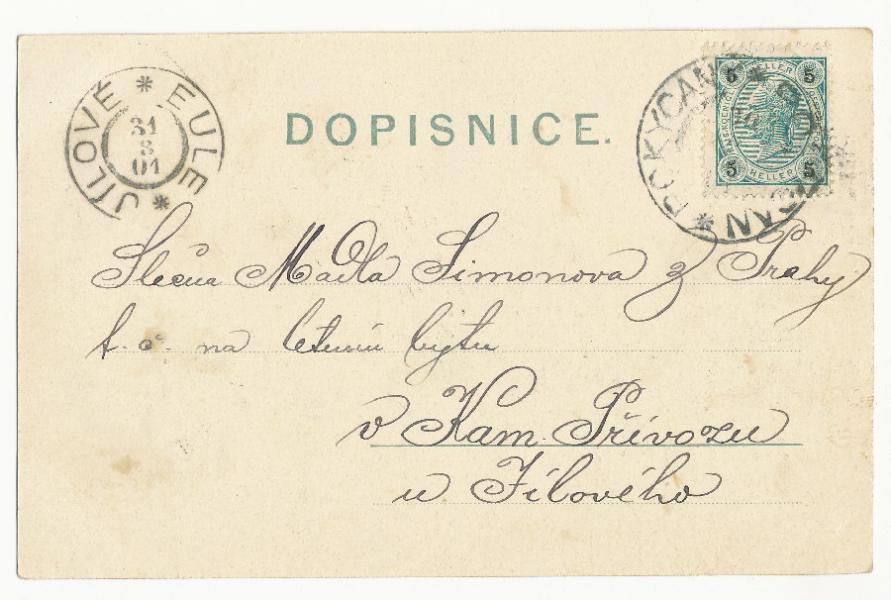 JÍLOVÉ * EULE *
31
8
01
DOPISNICE.
ROKYCANY *
5 HELLER 5
5 HELLER 5
Slečna Mádla Šimonova z Prahy
t. č. na letním bytu
v Kam. Přívozu
u Jílového